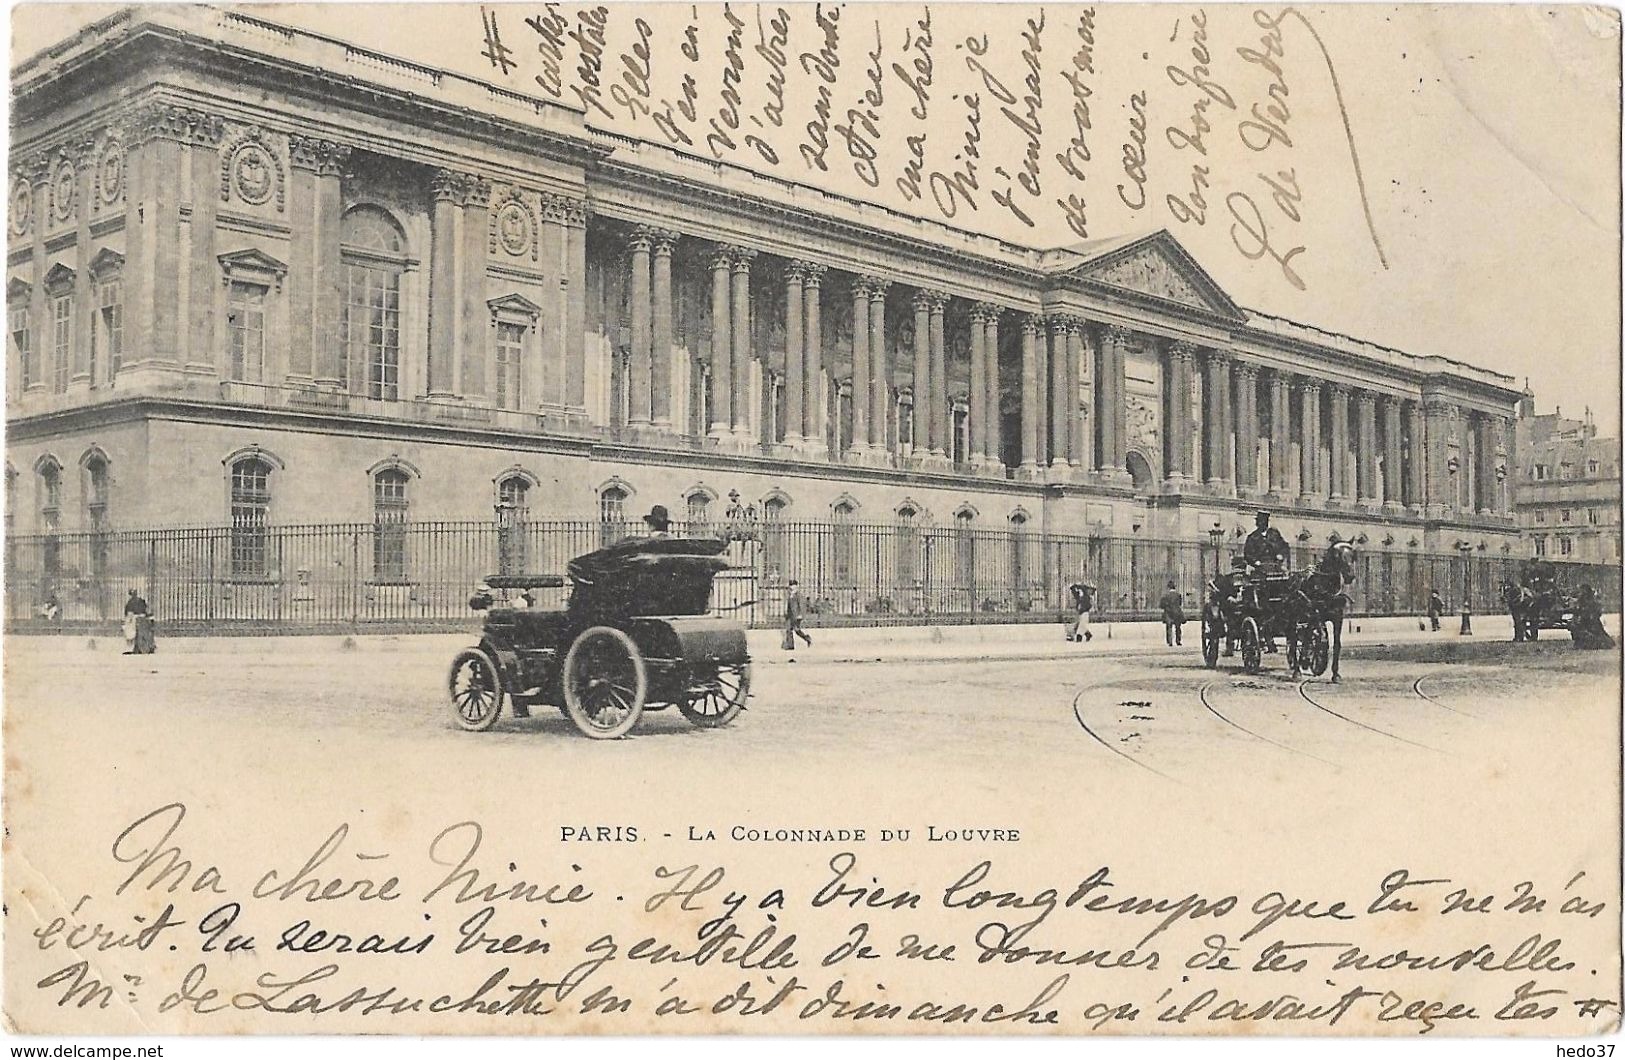 PARIS. - LA COLONNADE DU LOUVRE
Ma chère Ninie. Il y a bien longtemps que tu ne m'as
écrit. Tu serais bien gentille de me donner de tes nouvelles.
Mr de Lassuchette m'a dit dimanche qu'il avait reçu tes #
#
cartes
postales
Elles
t'en en-
verront
d'autres
sans doute
et Dieu
ma chère
Ninie je
t'embrasse
de tout mon
cœur.
Ton bon frère
L. de Verdal
hedo37